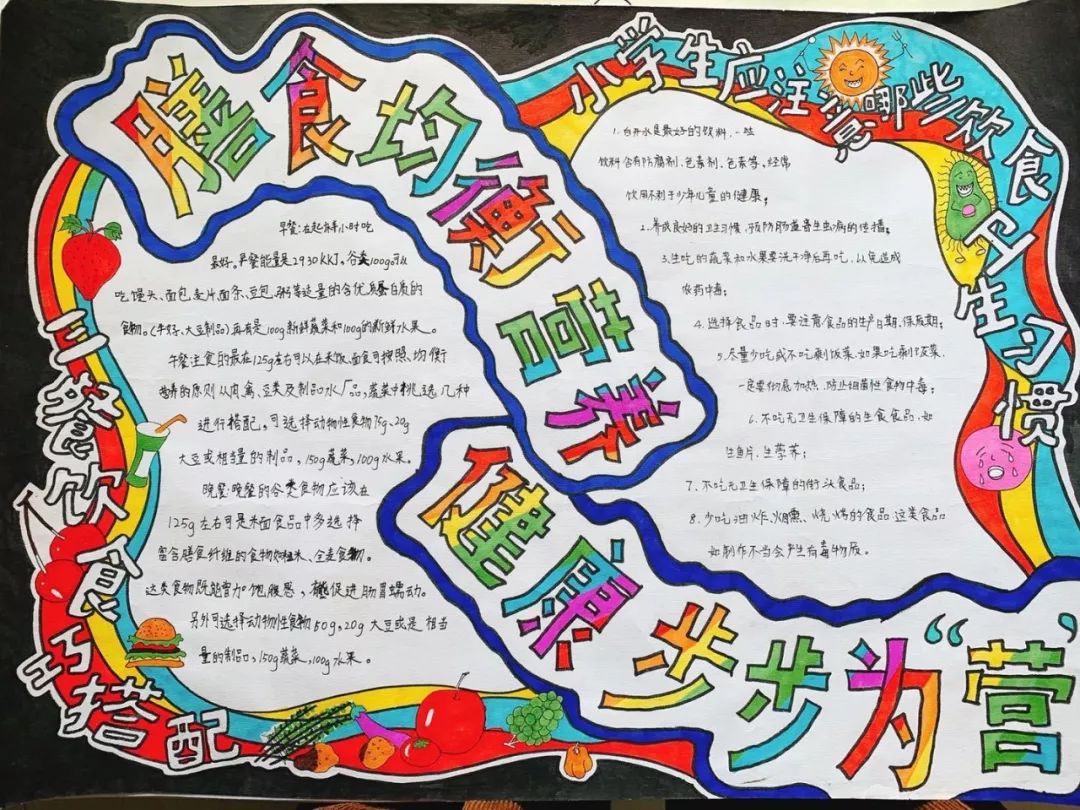 膳食均衡营养
健康步步为“营”
三餐饮食巧搭配
早餐:在起床半小时吃
最好。早餐能量是2930KKJ。谷类100g可以
吃馒头、面包、麦片面条、豆包、粥等适量的含优质蛋白质的
食物。(牛奶、大豆制品)再有是100g新鲜蔬菜和100g的新鲜水果。
午餐主食的最在125g左右可以在米饭、面食可按照、均衡
营养的原则从肉禽、豆类及制品水厂品,蔬菜中挑选几种
进行搭配。可选择动物性食物75g、20g
大豆或相当量的制品,150g蔬菜,100g水果。
晚餐:晚餐的谷类食物应该在
125g左右可是米面食品中多选择
富含膳食纤维的食物如粗米、全麦食物。
这类食物既能增加饱腹感,能促进肠胃蠕动。
另外可选择动物性食物50g,20g大豆或是相当
量的制品,150g蔬菜,100g水果。
小学生应注意哪些饮食卫生习惯
1.白开水是最好的饮料,一些
饮料含有防腐剂、色素剂、色素等。经常
饮用不利于少年儿童的健康;
2.养成良好的卫生习惯,预防肠道寄生虫病的传播;
3.生吃的蔬菜和水果要洗干净后再吃,以免造成
农药中毒;
4.选择食品时,要注意食品的生产日期、保质期;
5.尽量少吃或不吃剩饭菜,如果吃剩饭菜,
一定要彻底加热,防止细菌性食物中毒;
6.不吃无卫生保障的生食食品,如
生鱼片、生荸荠;
7.不吃无卫生保障的街头食品;
8.少吃油炸、烟熏、烧烤的食品,这类食品
如制作不当会产生有毒物质。